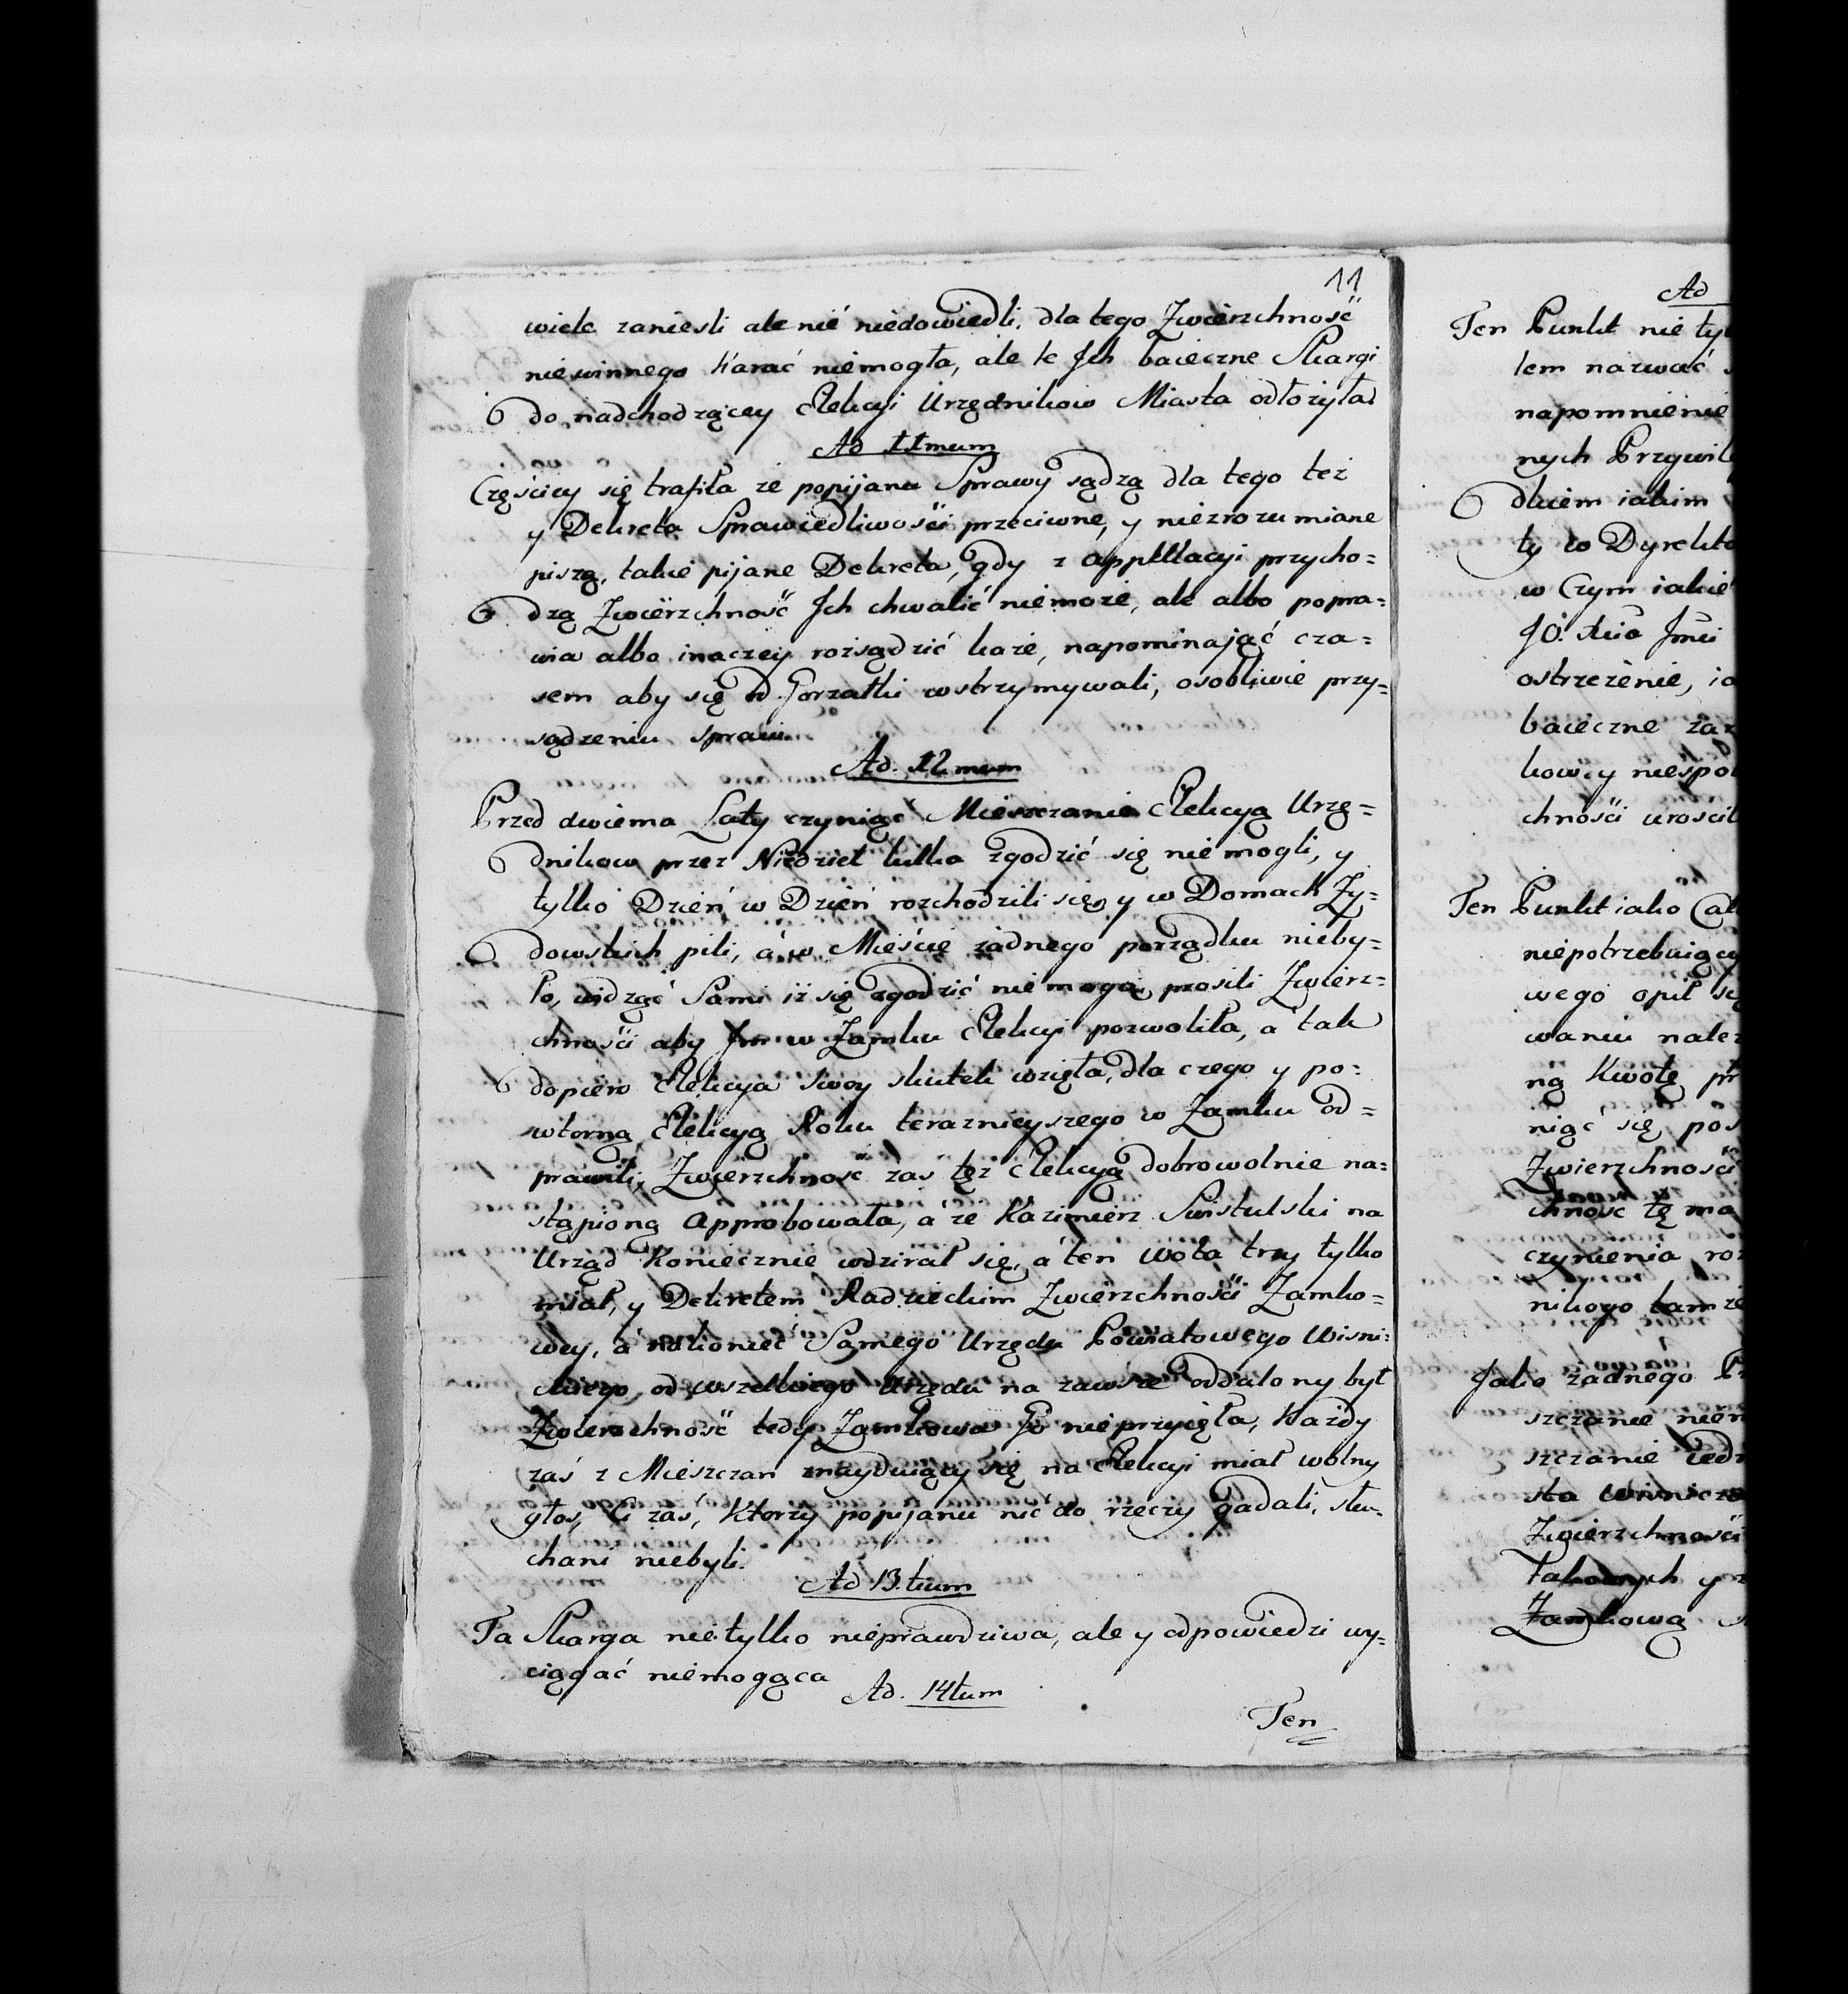 11
wiele zanieśli ale nić niedowiedli, dla tego Zwierzchność
niewinnego karać niemogła, ale te Ich baieczne Skargi
do nadchodzącey Elekcyi Urzędnikow Miasta odłożyła
Ad 11mum
Częściey się trafiła że popijanu Sprawy sądzą dla tego też
y Dekreta Sprawiedliwości przeciwne, y niezrozumiane
piszą, takie pijane Dekreta, gdy z appellacyi przycho=
dzą Zwierzchność Ich chwalić niemoże, ale albo popra=
wia albo inaczey rozsądzić każe, napominając cza=
sem aby się od Gorzałki wstrzymywali, osobliwie przy=
sądzeniu spraw.
Ad. 12mum
Przed dwiema Laty czyniąc Mieszczanie Elekcyą Urzę=
dnikow przez Niedziel kilka zgodzić się nie mogli, y
tylko Dzień w Dzień rozchodzili się, y w Domach Ży=
dowskich pili, a w Mieście żadnego porządku nieby=
ło, widząc Sami iż się zgodzić nie mogą, prosili Zwierz=
chności aby Im w Zamku Elekcyi pozwoliła, a tak
dopiero Elekcya swoy skutek wzięła, dla czego y po=
wtorną Elekcyą Roku teraznieyszego w Zamku od=
prawili, Zwierzchność zaś też Elekcyą dobrowolnie na=
stąpioną approbowała, a że Kazimierz Swistulski na
Urząd Koniecznie wdzirał się, a ten wota trzy tylko
miał, y Dekretem Radzieckim Zwierzchności Zamko=
wey, a nakoniec Samego Urzędu Powiatowego Wisni=
ckiego od wszelkiego Urzędu na zawsze oddalony był
Zwierzchność tedy Zamkowa Go nieprzyięła, Każdy
zaś z Mieszczan znayduiący się na Elekcyi miał wolny
głos, Ci zaś, Którzy popijanu nić do rzeczy gadali, słu=
chani niebyli.
Ad 13.tium
Ta Skarga nietylko nieprawdziwa, ale y odpowiedzi wy=
ciągać niemogąca
Ad. 14tum
Ten
Ad
Ten Punkt nie ty
tem nazwać
napomnienie
nych Przywil
dkiem iakim
ty to Dyrekto
w Czym iakie
JO.
ostrzeżenie, ia
baieczne za
kow, y niespo
chności urościl
Ten Punkt iako Cał
niepotrzebuiący
wego opił się
waniu nale
ną Kwotę pr
niąć się pos
Zwierzchności
chność tę ma
czynienia ro
nikogo tamże
Jako żadnego P
szczanie niem
szczanie iedn
sta wisnicz
Zwierzchności
Takowych y
Zamkową